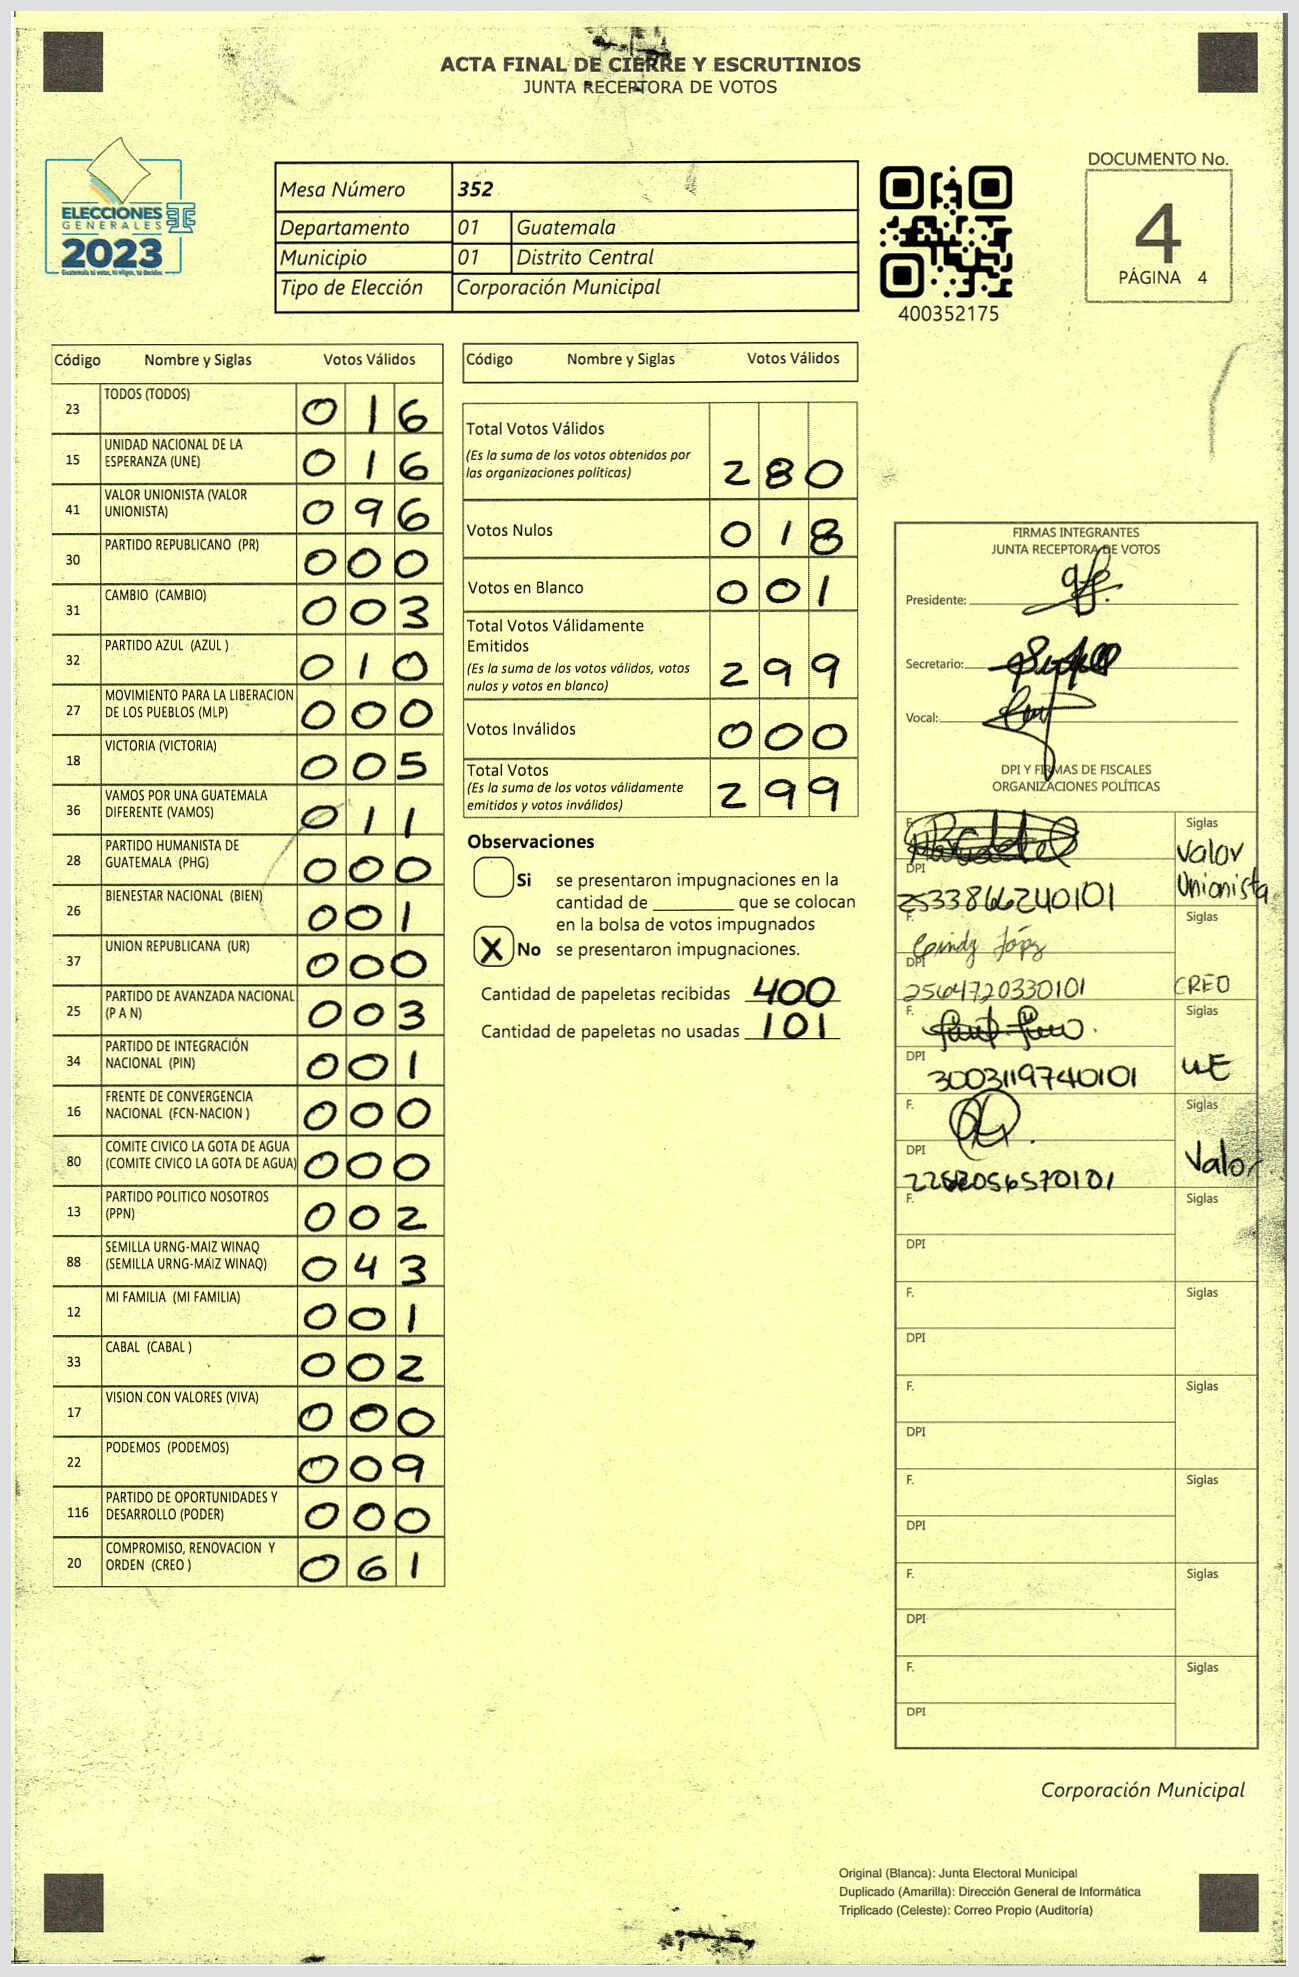 ACTA FINAL DE CIERRE Y ESCRUTINIOS
JUNTA RECEPTORA DE VOTOS
ELECCIONES
GENERALES
2023
Mesa Número 352
Departamento 01 Guatemala
Municipio 01 Distrito Central
Tipo de Elección Corporación Municipal
400352175
DOCUMENTO No.
4
PÁGINA 4
Código Nombre y Siglas Votos Válidos
23 TODOS (TODOS) 0 1 6
15 UNIDAD NACIONAL DE LA
ESPERANZA (UNE) 0 1 6
41 VALOR UNIONISTA (VALOR
UNIONISTA) 0 9 6
30 PARTIDO REPUBLICANO (PR) 0 0 0
31 CAMBIO (CAMBIO) 0 0 3
32 PARTIDO AZUL (AZUL ) 0 1 0
27 MOVIMIENTO PARA LA LIBERACION
DE LOS PUEBLOS (MLP) 0 0 0
18 VICTORIA (VICTORIA) 0 0 5
36 VAMOS POR UNA GUATEMALA
DIFERENTE (VAMOS) 0 1 1
28 PARTIDO HUMANISTA DE
GUATEMALA (PHG) 0 0 0
26 BIENESTAR NACIONAL (BIEN) 0 0 1
37 UNION REPUBLICANA (UR) 0 0 0
25 PARTIDO DE AVANZADA NACIONAL
(P A N) 0 0 3
34 PARTIDO DE INTEGRACIÓN
NACIONAL (PIN) 0 0 1
16 FRENTE DE CONVERGENCIA
NACIONAL (FCN-NACION ) 0 0 0
80 COMITE CIVICO LA GOTA DE AGUA
(COMITE CIVICO LA GOTA DE AGUA) 0 0 0
13 PARTIDO POLITICO NOSOTROS
(PPN) 0 0 2
88 SEMILLA URNG-MAIZ WINAQ
(SEMILLA URNG-MAIZ WINAQ) 0 4 3
12 MI FAMILIA (MI FAMILIA) 0 0 1
33 CABAL (CABAL ) 0 0 2
17 VISION CON VALORES (VIVA) 0 0 0
22 PODEMOS (PODEMOS) 0 0 9
116 PARTIDO DE OPORTUNIDADES Y
DESARROLLO (PODER) 0 0 0
20 COMPROMISO, RENOVACION Y
ORDEN (CREO ) 0 6 1
Código Nombre y Siglas Votos Válidos
Total Votos Válidos
(Es la suma de los votos obtenidos por
las organizaciones políticas) 2 8 0
Votos Nulos 0 1 8
Votos en Blanco 0 0 1
Total Votos Válidamente
Emitidos
(Es la suma de los votos válidos, votos
nulos y votos en blanco) 2 9 9
Votos Inválidos 0 0 0
Total Votos
(Es la suma de los votos válidamente
emitidos y votos inválidos) 2 9 9
Observaciones
Si se presentaron impugnaciones en la
cantidad de ________ que se colocan
en la bolsa de votos impugnados
X No se presentaron impugnaciones.
Cantidad de papeletas recibidas 400
Cantidad de papeletas no usadas 101
FIRMAS INTEGRANTES
JUNTA RECEPTORA DE VOTOS
Presidente:
Secretario:
Vocal:
DPI Y FIRMAS DE FISCALES
ORGANIZACIONES POLÍTICAS
F. Siglas
Valor
Unionista
DPI
2533866240101
F. Siglas
DPI
2564720330101 CREO
F. Siglas
DPI 3003119740101 UNE
F. Siglas
DPI Valor
F. Siglas
DPI
F. Siglas
DPI
F. Siglas
DPI
F. Siglas
DPI
F. Siglas
DPI
F. Siglas
DPI
Corporación Municipal
Original (Blanca): Junta Electoral Municipal
Duplicado (Amarilla): Dirección General de Informática
Triplicado (Celeste): Correo Propio (Auditoría)